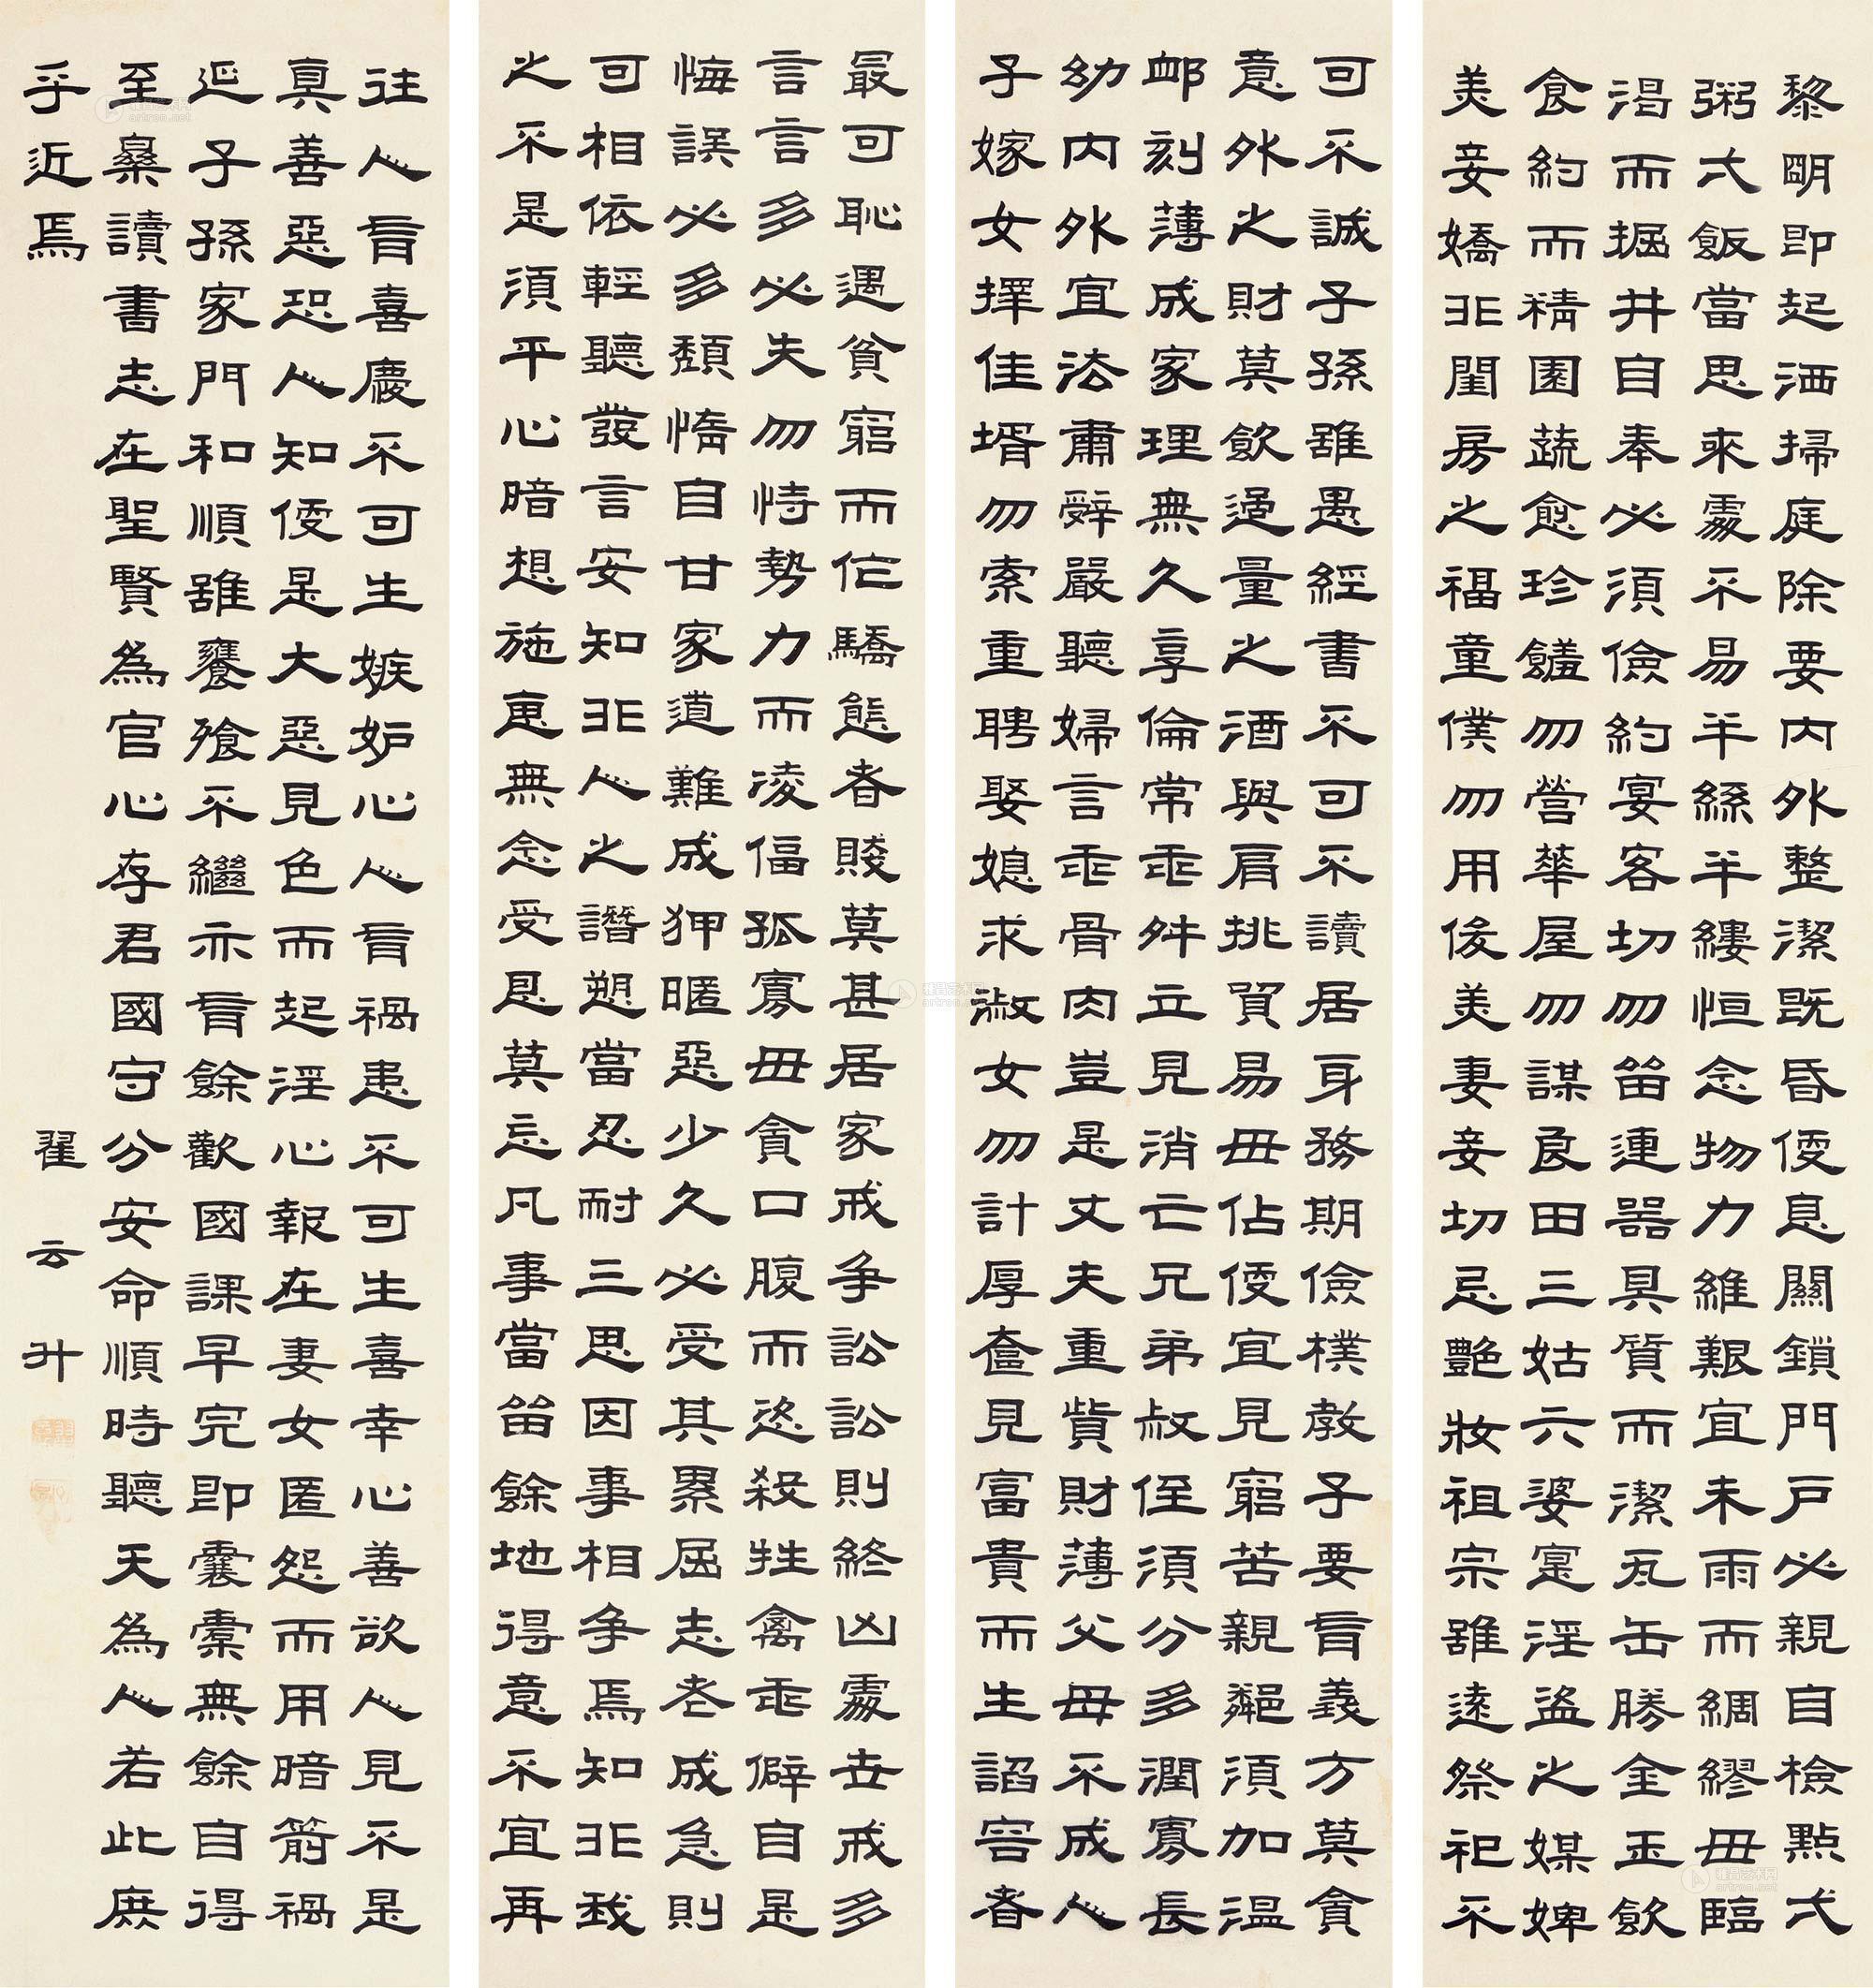 黎明即起洒掃庭除要内外整潔既昏便息關鎖門戶必親自檢點弌
粥弌飯當思來處不易半絲半縷恒念物力維艱宜未雨而綢繆毋臨
渴而掘井自奉必須儉約宴客切勿留連器具質而潔瓦缶勝金玉飲
食約而精園蔬愈珍饈勿營華屋勿謀良田三姑六婆寔淫盜之媒婢
美妾嬌非閨房之福童僕勿用俊美妻妾切忌艷妝祖宗雖遠祭祀不
可不誠子孫雖愚經書不可不讀居身務期儉樸教子要有義方莫貪
意外之財莫飲過量之酒與肩挑貿易毋佔便宜見窮苦親鄰須加溫
卹刻薄成家理無久享倫常乖舛立見消亡兄弟叔侄須分多潤寡長
幼内外宜法肅辭嚴聽婦言乖骨肉豈是丈夫重貲財薄父母不成人
子嫁女擇佳壻勿索重聘娶媳求淑女勿計厚奩見富貴而生諂容者
最可恥遇貧窮而作驕態者賤莫甚居家戒爭訟訟則終凶處世戒多
言言多必失勿恃勢力而凌偪孤寡毋貪口腹而恣殺牲禽乖僻自是
悔誤必多頹惰自甘家道難成狎暱惡少久必受其累屈志老成急則
可相依輕聽發言安知非人之譖愬當忍耐三思因事相爭焉知非我
之不是須平心暗想施惠無念受恩莫忘凡事當留餘地得意不宜再
往人有喜慶不可生嫉妒心人有禍患不可生喜幸心善欲人見不是
真善惡恐人知便是大惡見色而起淫心報在妻女匿怨而用暗箭禍
延子孫家門和順雖饔飧不繼亦有餘歡國課早完即囊橐無餘自得
至樂讀書志在聖賢為官心存君國守分安命順時聽天為人若此庶
乎近焉
翟云升
雅昌艺术网
artron.net